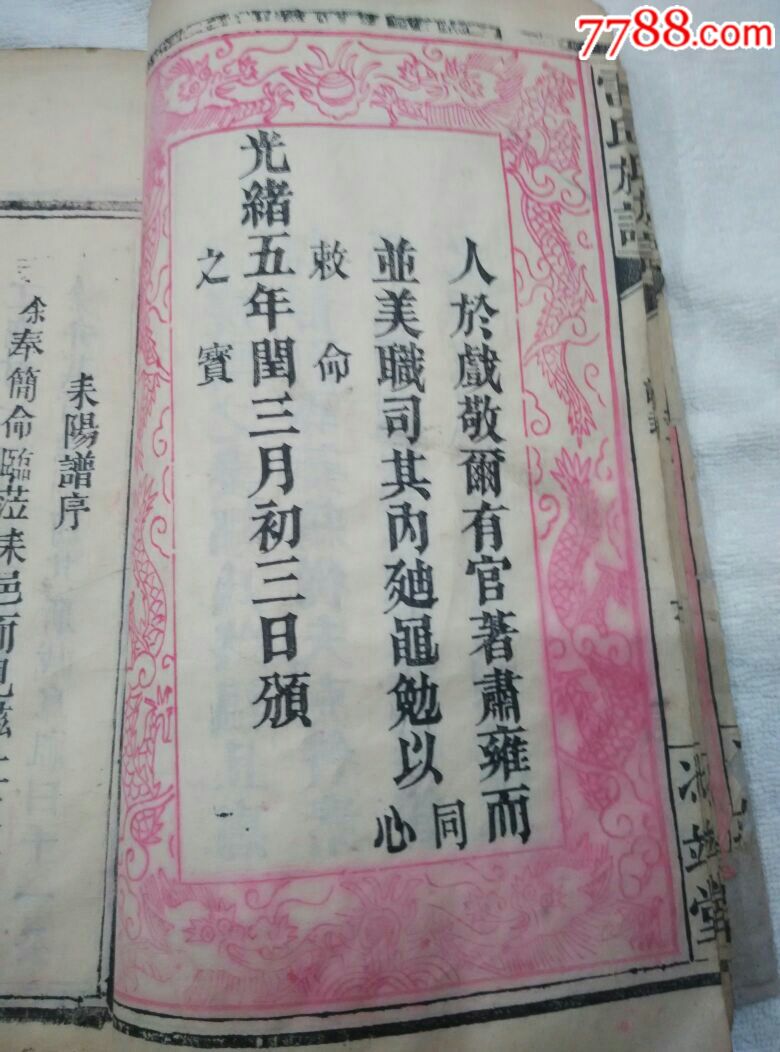 7788.com
人於戲敬爾有官著肅雍而
並美職司其內廸黽勉以同
心
敕命
之寶
光緒五年閏三月初三日頒
耒陽譜序
余奉簡命臨莅耒邑而見茲
氏族譜
堂